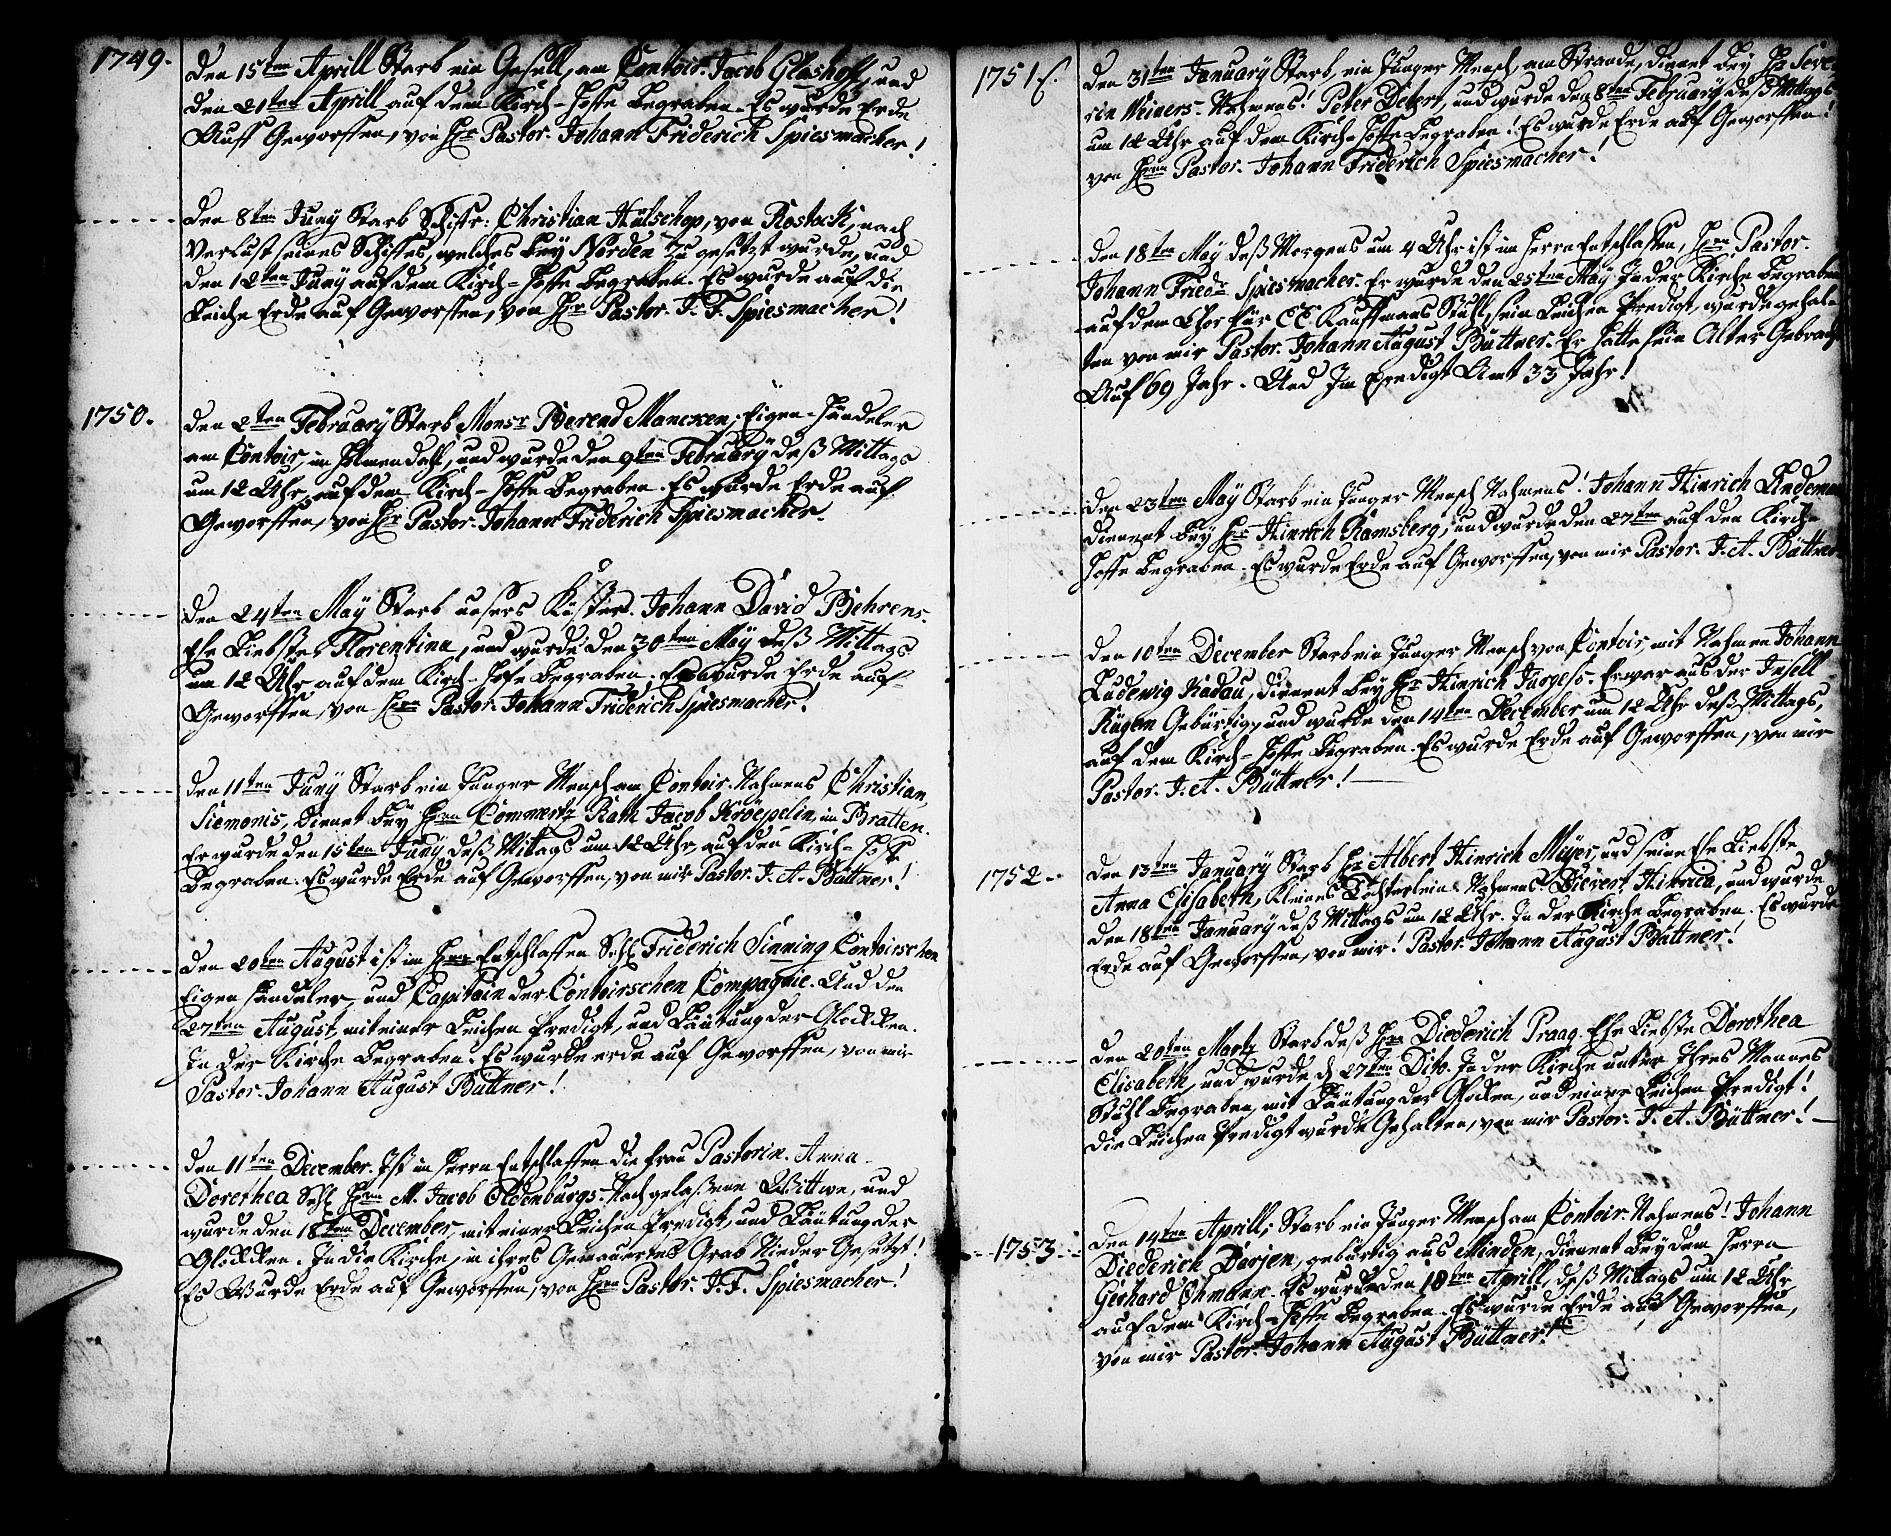 1749.
Den 15ten Aprill Starb ein Gesell, am Contoir. Jacob Glashoff, und
den 21ten Aprill auf dem Kirch-Hoffe Begraben. Es wurde Erde
Auff Geworffen, von Hr Pastor. Johann Friderich Spiesmacher!
Den 8ten Juny Starb Schiffr: Christian Hülschop, von Rostock, nach
Verlust seines Schiffes, welches bey Norden zu gesetzt wurde, und
den 12ten Juny auf dem Kirch-Hoffe Begraben. Es wurde auf die
Leiche Erde auf Geworffen, von Hr Pastor. J. F. Spiesmacher!
1750.
Den 2ten February Starb Monsr Berend Mancken, Eigen-Händeler
am Contoir, im Holmendahl, und wurde den 9ten February deß Mittags
um 12 Uhr auf dem Kirch-Hoffe Begraben. Es wurde Erde auf
Geworffen, von Hr Pastor. Johann Friderich Spiesmacher.
Den 24ten May Starb unsers Küsters. Johann David Behrens.
Ehe Liebste, Florentina, und wurde den 30ten May deß Mittags
um 12 Uhr auf dem Kirch-Hofe Begraben. Es wurde Erde auf-
Geworffen, von Hrn Pastor. Johann Friderich Spiesmacher!
Den 11ten Juny Starb ein Junger Mensch am Contoir. Nahmens Christian,
Siemonis, dienet bey Hrn Commertz Rath Jacob Kröepelin, im Bratten.
Er wurde den 15ten Juny deß Mittags um 12 Uhr, auf den Kirch-Hoffe
Begraben. Es wurde Erde auf Geworffen, von mir Pastor. J. A. Büttner!
Den 20ten August ist im Hrn Entschlaffen Sehl Friderich Sinning Contoirschen
Eigen Händeler, und Capitain der Contoirschen Compagnie. Und den
27ten August, mit einer Leichen Predigt, und Läutung der Glocken.
In der Kirche Begraben. Es wurde erde auf Geworffen, von mir
Pastor. Johann August Büttner!
Den 11ten December. Ist im Herrn Entschlaffen die Frau Pastorin. Anna
Dorothea Sehl Hrn M. Jacob Oldenburgs. Nachgelaßene Wittwe, und
wurde den 18ten December, mit einer Leichen Predigt, und Läutung der
Glocken. In die Kirche, in ihres Gemauertes Grab Nieder Gesetzt!
Es Wurde Erde auf Geworffen, von Hrn Pastor. J. F. Spiesmacher!
1751
Den 31ten January Starb, ein Junger Mensch, am Strande, dienet bey Hr Seve-
rin Weiners. Nahmens! Peter Detert, und wurde den 8ten February deß Mittags
um 12 Uhr auf dem Kirch-Hoffe Begraben! Es wurde Erde auf Geworffen!
von Hrn Pastor. Johann Friderich Spiesmacher!
Den 18ten May deß Morgens um 4 Uhr ist im Herrn Entschlaffen, Hrn Pastor.
Johann Friedr Spiesmacher. Er wurde den 25ten May In der Kirche Begraben
auf dem Chor für EE. Kauffmans Stuhl, sein Leichen Predigt, wurde gehal-
ten von mir Pastor. Johann August Büttner. Er hatte sein Alter Gebracht
Auf 69 Jahr. Und Im Predigt Amt 33 Jahr!
Den 23ten May Starb ein Junger Mensch Nahmens! Johann Hinrich Lindeman
dienent bey Hr Hinrich Ramsberg, und wurde den 27ten auf den Kirch-
Hoffe Begraben. Es wurde Erde auf Geworffen, von mir Pastor. J. A. Büttner.
Den 10ten December Starb ein Junger Mensch von Contoir, mit Nahmen Johann
Ludewig Radau, dienent bey Hr Hinrich Jurgess. Er war aus der Insell
Rügen Gebürtig, und wurde den 14ten December um 12 Uhr deß Mittags,
auf dem Kirch-Hoffe Begraben. Es wurde Erde auf Geworffen, von mir
Pastor. J. A. Büttner!
1752.
Den 13ten January Starb Hr Albert Hinrich Müyer, und seine Ehe Liebste
Anna Elisabeth, Kleines Töchterlein. Nahmens Dievert Hinrica, und wurde
den 18ten January deß Mittags um 12 Uhr. In der Kirche Begraben. Es wurde
Erde auf Geworffen, von mir! Pastor. Johann August Büttner!
Den 20ten Martz Starb deß Hrn Diederich Praag. Ehe Liebste Dorothea
Elisabeth, und wurde d 27ten Dito. In der Kirche unter Ihres Mannes
Stuhl Begraben, mit Läutung der Glocken, und einer Leichen Predigt!
Die Leichen Predigt wurde Gehalten, von mir Pastor. J. A. Büttner!
1753.
Den 14ten Aprill, Starb ein Junger Mensch am Contoir. Nahmens! Johann
Diederich Dorjen, gebürtig aus Minden, dienent bey dem Herrn
Gerhard Ohmann. Es wurde den 18ten Aprill, deß Mittags um 12 Uhr
auf dem Kirch-Hoffe Begraben. Es wurde Erde auf Geworffen,
von mir Pastor. Johann August Büttner!